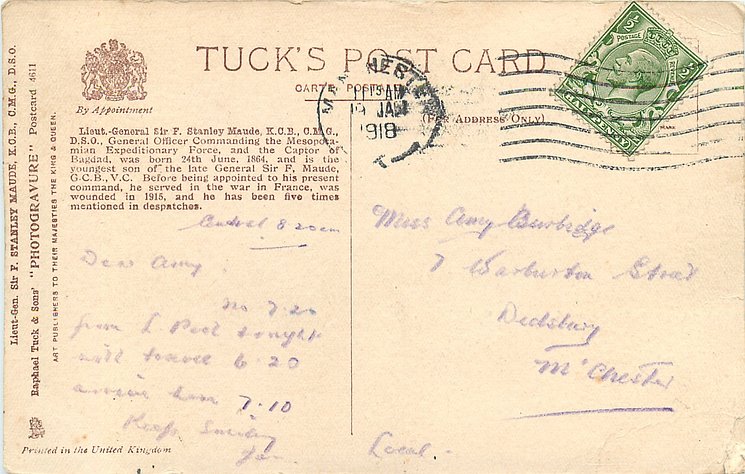 Lieut-Gen. Sir F. STANLEY MAUDE, K.C.B., C.M.G., D.S.O.
Raphael Tuck & Sons' "PHOTOGRAVURE" Postcard 4611
ART PUBLISHERS TO THEIR MAJESTIES THE KING & QUEEN.
By Appointment
TUCK'S POST CARD
CARTE POSTALE
(For Address Only)
Lieut.-General Sir F. Stanley Maude, K.C.B., C.M.G.,
D.S.O., General Officer Commanding the Mesopota-
mian Expeditionary Forces, and the Captor of
Bagdad, was born 24th June, 1864, and is the
youngest son of the late General Sir F, Maude,
G.C.B., V.C. Before being appointed to his present
command, he served in the war in France, was
wounded in 1915, and he has been five times
mentioned in despatches.
Central 8 20am
Dear Amy.
No 7.20
from L Pool tonight
will travel 6.20
arrive home 7.10
Keep Smiling
MANCHESTER
AM
19 JAN
1918
½ POSTAGE ½
HALFPENNY
Miss Amy Burbidge
7 Warburton Street
Didsbury
M'Chester
Local -
Printed in the United Kingdom